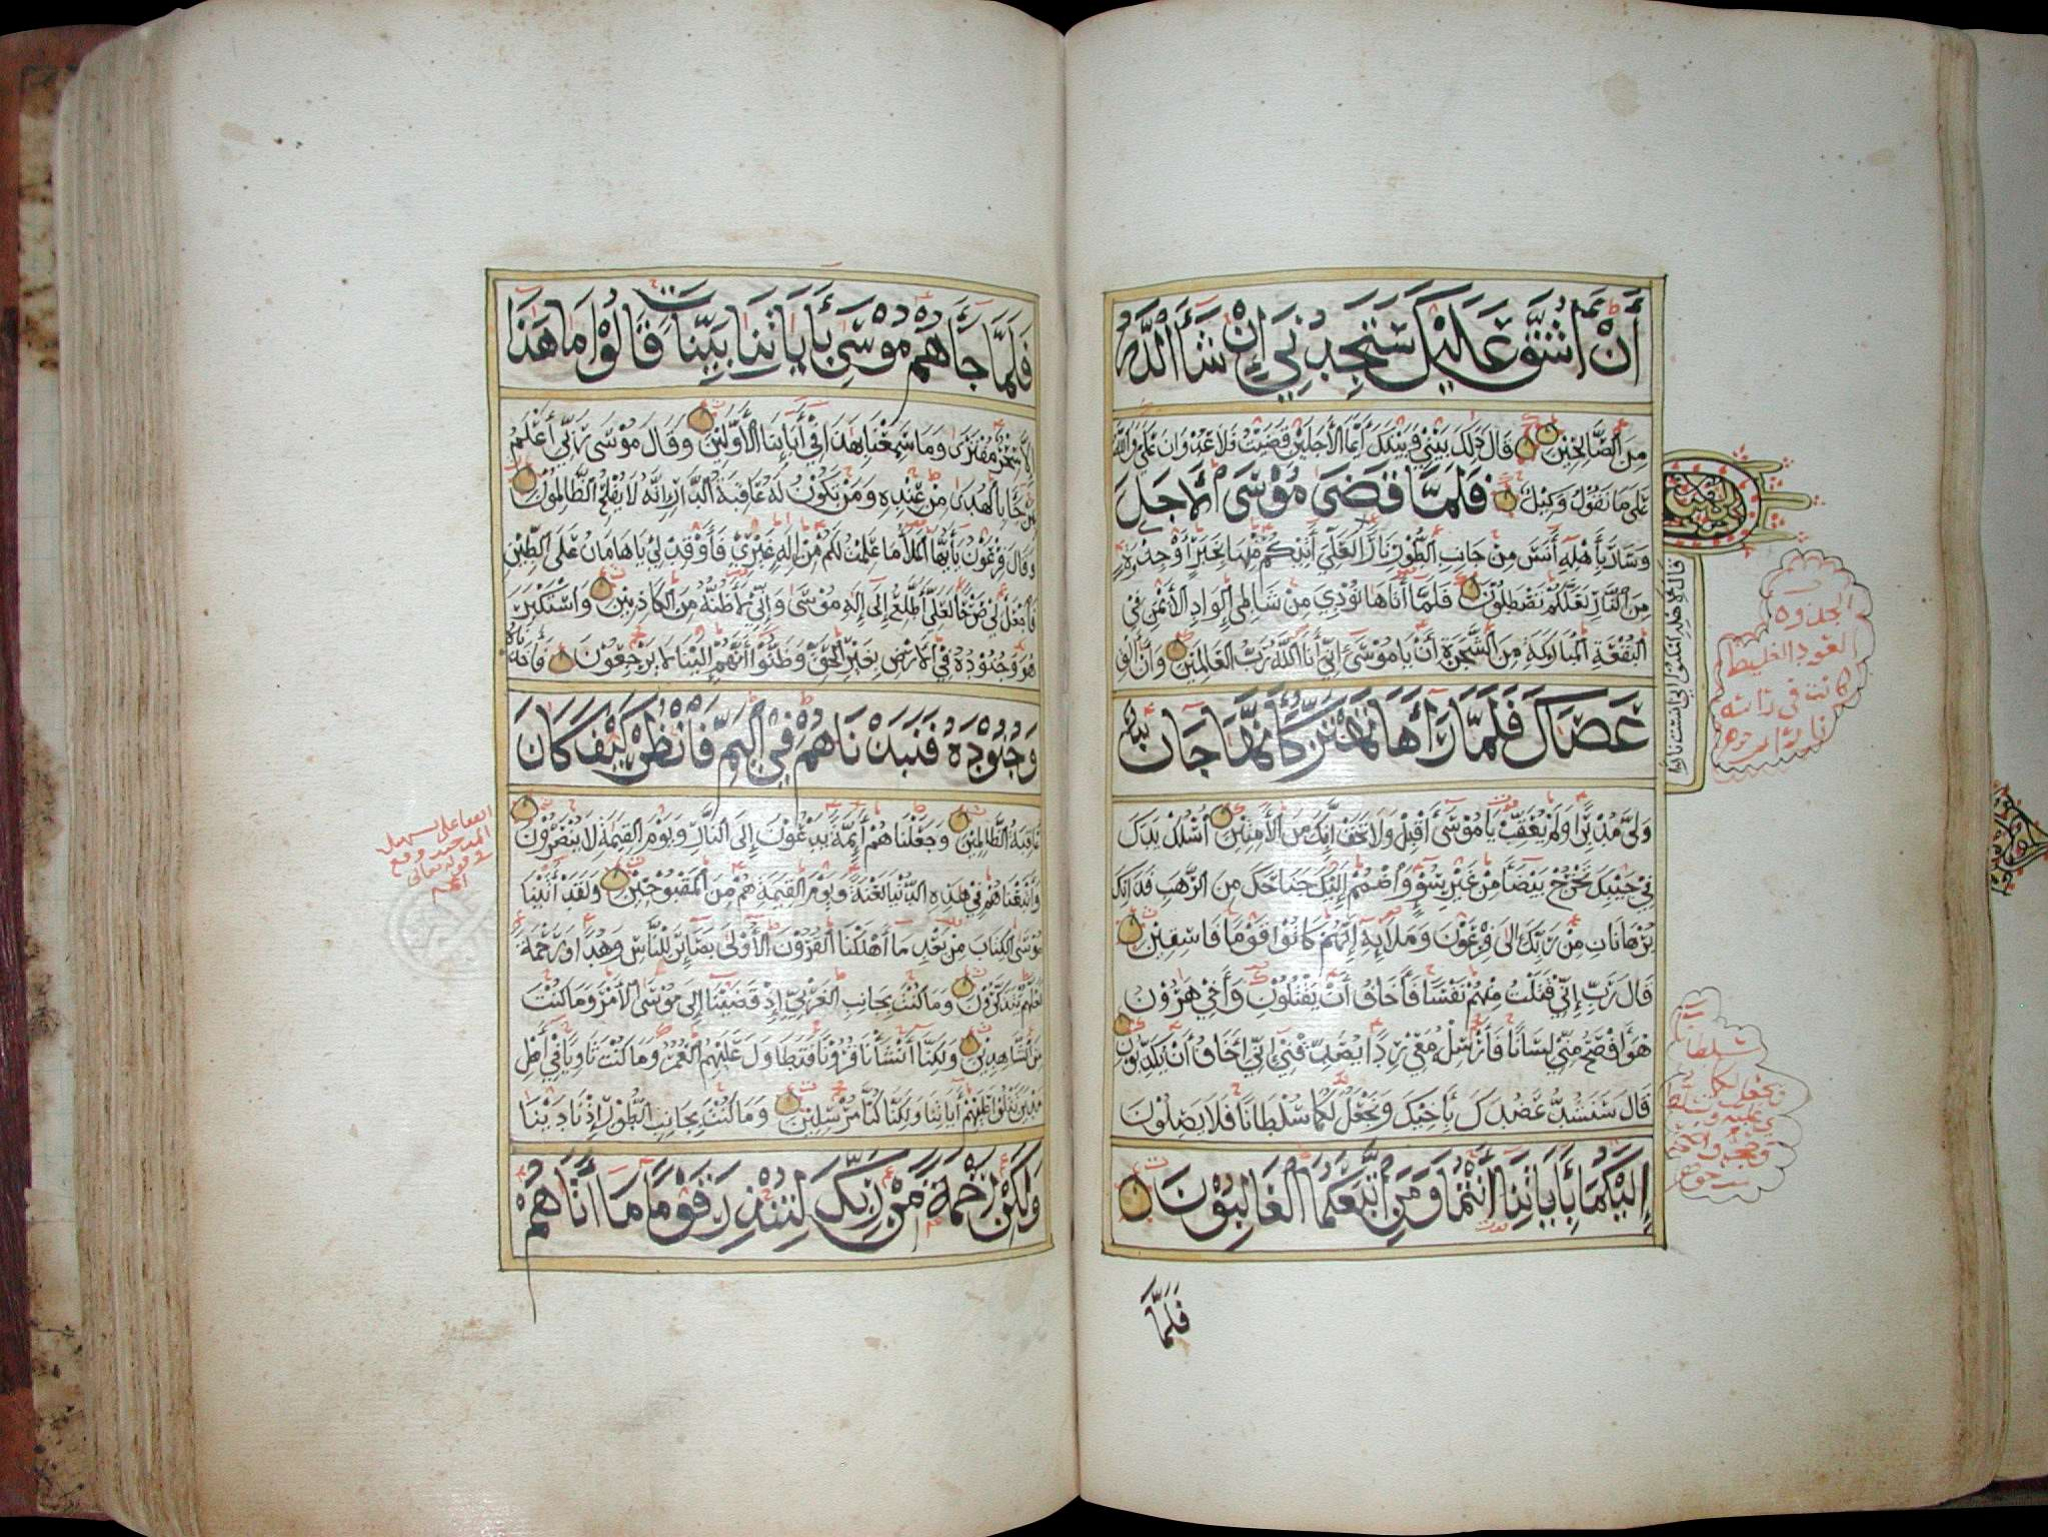 أَنْ أَشُقَّ عَلَيْكَ سَتَجِدُنِي إِنْ شَاءَ اللَّهُ
مِنَ الصَّالِحِينَ قَالَ ذَلِكَ بَيْنِي وَبَيْنَكَ أَيَّمَا الْأَجَلَيْنِ قَضَيْتُ فَلَا عُدْوَانَ عَلَيَّ وَاللَّهُ
عَلَى مَا نَقُولُ وَكِيلٌ فَلَمَّا قَضَى مُوسَى الْأَجَلَ
وَسَارَ بِأَهْلِهِ آنَسَ مِنْ جَانِبِ الطُّورِ نَارًا لَعَلِّي آتِيكُمْ مِنْهَا بِخَبَرٍ أَوْ جَذْوَةٍ
مِنَ النَّارِ لَعَلَّكُمْ تَصْطَلُونَ فَلَمَّا أَتَاهَا نُودِيَ مِنْ شَاطِئِ الْوَادِ الْأَيْمَنِ فِي
الْبُقْعَةِ الْمُبَارَكَةِ مِنَ الشَّجَرَةِ أَنْ يَا مُوسَى إِنِّي أَنَا اللَّهُ رَبُّ الْعَالَمِينَ وَأَنْ أَلْقِ
عَصَاكَ فَلَمَّا رَآهَا تَهْتَزُّ كَأَنَّهَا جَانٌّ
وَلَّى مُدْبِرًا وَلَمْ يُعَقِّبْ يَا مُوسَى أَقْبِلْ وَلَا تَخَفْ إِنَّكَ مِنَ الْآمِنِينَ اسْلُكْ يَدَكَ
فِي جَيْبِكَ تَخْرُجْ بَيْضَاءَ مِنْ غَيْرِ سُوءٍ وَاضْمُمْ إِلَيْكَ جَنَاحَكَ مِنَ الرَّهَبِ فَذَانِكَ
بُرْهَانَانِ مِنْ رَبِّكَ إِلَى فِرْعَوْنَ وَمَلَئِهِ إِنَّهُمْ كَانُوا قَوْمًا فَاسِقِينَ
قَالَ رَبِّ إِنِّي قَتَلْتُ مِنْهُمْ نَفْسًا فَأَخَافُ أَنْ يَقْتُلُونِ وَأَخِي هَرُونُ
هُوَ أَفْصَحُ مِنِّي لِسَانًا فَأَرْسِلْهُ مَعِيَ رِدْءًا يُصَدِّقُنِي إِنِّي أَخَافُ أَنْ يُكَذِّبُونِ
قَالَ سَنَشُدُّ عَضُدَكَ بِأَخِيكَ وَنَجْعَلُ لَكُمَا سُلْطَانًا فَلَا يَصِلُونَ
إِلَيْكُمَا بِآيَاتِنَا أَنْتُمَا وَمَنِ اتَّبَعَكُمَا الْغَالِبُونَ
فَلَمَّا
الجذوة
العود الغليظ
كانت في رأسه
نار أو لم
فَلَمَّا جَاءَهُمْ مُوسَى بِآيَاتِنَا بَيِّنَاتٍ قَالُوا مَا هَذَا
إِلَّا سِحْرٌ مُفْتَرًى وَمَا سَمِعْنَا بِهَذَا فِي آبَائِنَا الْأَوَّلِينَ وَقَالَ مُوسَى رَبِّي أَعْلَمُ
بِمَنْ جَاءَ بِالْهُدَى مِنْ عِنْدِهِ وَمَنْ تَكُونُ لَهُ عَاقِبَةُ الدَّارِ إِنَّهُ لَا يُفْلِحُ الظَّالِمُونَ
وَقَالَ فِرْعَوْنُ يَا أَيُّهَا الْمَلَأُ مَا عَلِمْتُ لَكُمْ مِنْ إِلَهٍ غَيْرِي فَأَوْقِدْ لِي يَا هَامَانُ عَلَى الطِّينِ
فَاجْعَلْ لِي صَرْحًا لَعَلِّي أَطَّلِعُ إِلَى إِلَهِ مُوسَى وَإِنِّي لَأَظُنُّهُ مِنَ الْكَاذِبِينَ وَاسْتَكْبَرَ
هُوَ وَجُنُودُهُ فِي الْأَرْضِ بِغَيْرِ الْحَقِّ وَظَنُّوا أَنَّهُمْ إِلَيْنَا لَا يَرْجِعُونَ فَأَخَذْنَاهُ
وَجُنُودَهُ فَنَبَذْنَاهُمْ فِي الْيَمِّ فَانْظُرْ كَيْفَ كَانَ
عَاقِبَةُ الظَّالِمِينَ وَجَعَلْنَاهُمْ أَئِمَّةً يَدْعُونَ إِلَى النَّارِ وَيَوْمَ الْقِيَمَةِ لَا يُنْصَرُونَ
وَأَتْبَعْنَاهُمْ فِي هَذِهِ الدُّنْيَا لَعْنَةً وَيَوْمَ الْقِيَمَةِ هُمْ مِنَ الْمَقْبُوحِينَ وَلَقَدْ آتَيْنَا
مُوسَى الْكِتَابَ مِنْ بَعْدِ مَا أَهْلَكْنَا الْقُرُونَ الْأُولَى بَصَائِرَ لِلنَّاسِ وَهُدًى وَرَحْمَةً
لَعَلَّهُمْ يَتَذَكَّرُونَ وَمَا كُنْتَ بِجَانِبِ الْغَرْبِيِّ إِذْ قَضَيْنَا إِلَى مُوسَى الْأَمْرَ وَمَا كُنْتَ
مِنَ الشَّاهِدِينَ وَلَكِنَّا أَنْشَأْنَا قُرُونًا فَتَطَاوَلَ عَلَيْهِمُ الْعُمُرُ وَمَا كُنْتَ ثَاوِيًا فِي أَهْلِ
مَدْيَنَ تَتْلُو عَلَيْهِمْ آيَاتِنَا وَلَكِنَّا كُنَّا مُرْسِلِينَ وَمَا كُنْتَ بِجَانِبِ الطُّورِ إِذْ نَادَيْنَا
وَلَكِنْ رَحْمَةً مِنْ رَبِّكَ لِتُنْذِرَ قَوْمًا مَا أَتَاهُمْ